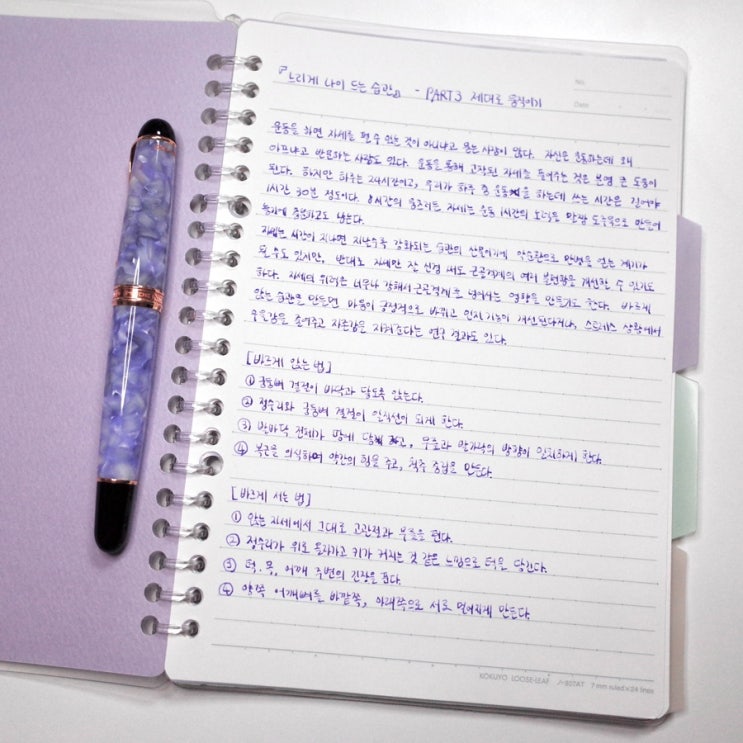 『느리게 나이 드는 습관』 - PART3 제대로 움직이기
No.
Date
운동을 하면 자세를 펼 수 있는 것이 아니냐고 묻는 사람이 많다. 자신은 운동하는데 왜
아프냐고 반문하는 사람도 있다. 운동을 통해 고장난 자세를 풀어주는 것은 분명 큰 도움이
된다. 하지만 하루는 24시간이고, 우리가 하루 중 운동을 하는데 쓰는 시간은 길어야
1시간 30분 정도이다. 8시간의 흐트러진 자세는 운동 1시간의 노력을 말짱 도루묵으로 만들어
놓기에 충분하고도 남는다.
자세는 시간이 지나면 지날수록 강화되는 습관의 산물이기에 악순환으로 만병을 얻는 계기가
될 수도 있지만, 반대로 자세만 잘 신경 써도 근골격계의 여러 불편함을 개선할 수 있기도
하다. 자세의 위력은 너무나 강해서 근골격계를 넘어서는 영향을 만들기도 한다. 바르게
앉는 습관을 만들면 마음이 긍정적으로 바뀌고 인지기능이 개선된다거나, 스트레스 상황에서
우울감을 줄여주고 자존감을 지켜준다는 연구 결과도 있다.
[바르게 앉는 법]
① 궁둥뼈 결절이 바닥과 닿도록 앉는다.
② 정수리와 궁둥뼈 결절이 일직선이 되게 한다.
③ 발바닥 전체가 땅에 닿고, 무릎과 발가락의 방향이 일치하게 한다.
④ 복근을 의식하여 약간의 힘을 주고, 척추 중립을 만든다.
[바르게 서는 법]
① 앉는 자세에서 그대로 고관절과 무릎을 편다.
② 정수리가 위로 올라가고 키가 커지는 것 같은 느낌으로 턱을 당긴다.
③ 턱, 목, 어깨 주변의 긴장을 푼다.
④ 양쪽 어깨뼈를 바깥쪽, 아래쪽으로 서로 멀어지게 만든다.
KOKUYO LOOSE-LEAF ノ-807AT 7 mm ruled×24 lines